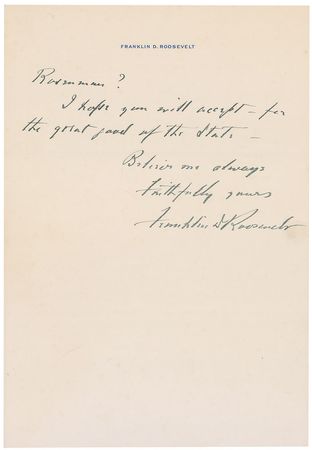 FRANKLIN D. ROOSEVELT
I hope you will accept – for
the great good of the State –
Believe me always
Faithfully yours
Franklin D Roosevelt